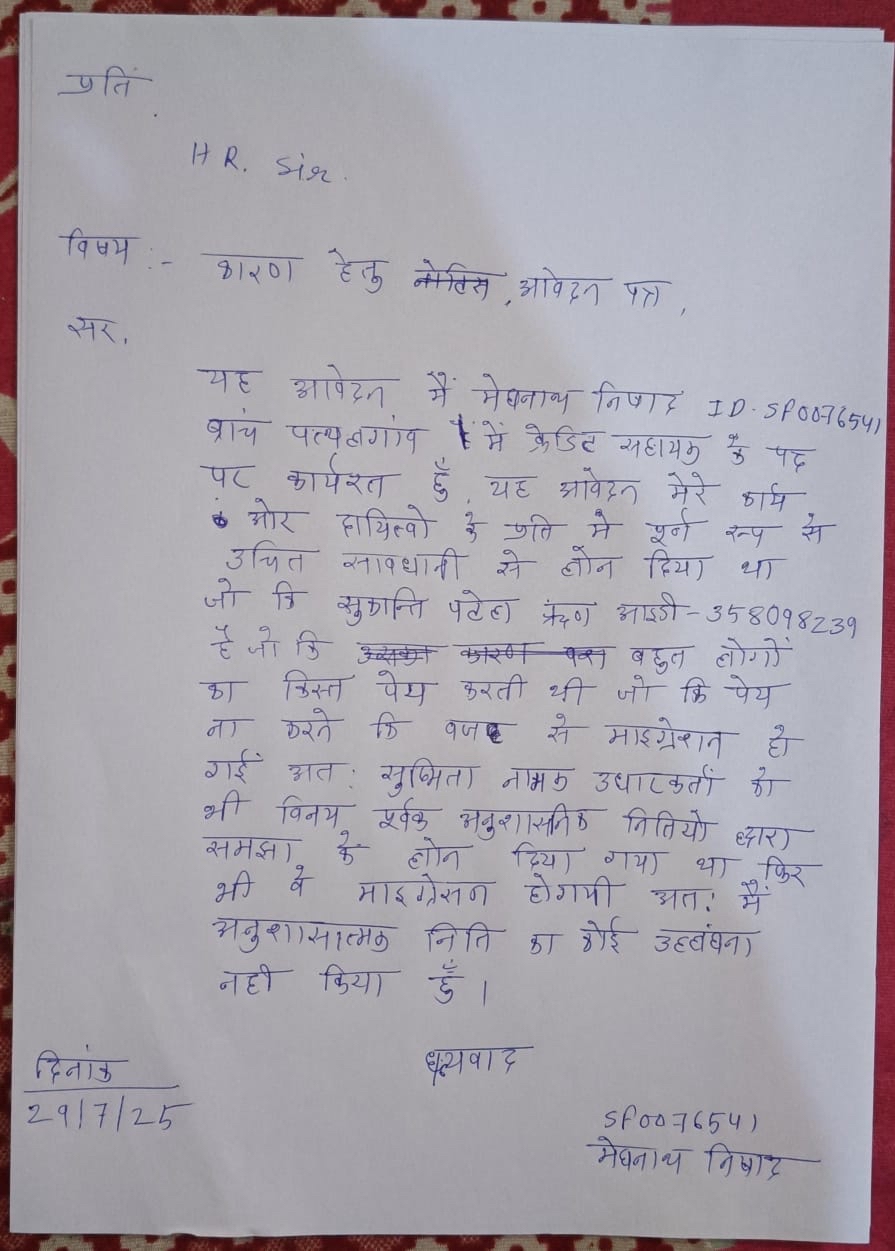 प्रति
HR. Sir.
विषय :- कारण हेतु नोटिस, आवेदन पत्र,
सर,
यह आवेदन मैं मेघनाथ निषाद ID. SP0076541
ब्रांच पत्थलगांव में क्रेडिट सहायक के पद
पर कार्यरत हुँ, यह आवेदन मेरे कार्य
ओर दायित्वो के प्रति मे पूर्न रूप से
उचित सावधानी से लोन दिया था
जो कि सुकान्ति पटेल ऋण आइडी - 358098239
है जो कि उसका कारण बहुत लोगों
का किस्त पेय करती थी जो कि पेय
ना करने कि वजह से माइग्रेशन हो
गई अत: सुष्मिता नामक उधारकर्ता को
भी विनय पूर्वक अनुशासनिक नितियो द्वारा
समझा के लोन दिया गया था फिर
भी वे माइग्रेसन होगयी अत: मैं
अनुशासात्मक निति का कोई उल्लंघना
नही किया हुँ।
धन्यवाद
दिनांक
29/7/25
SP0076541
मेघनाथ निषाद